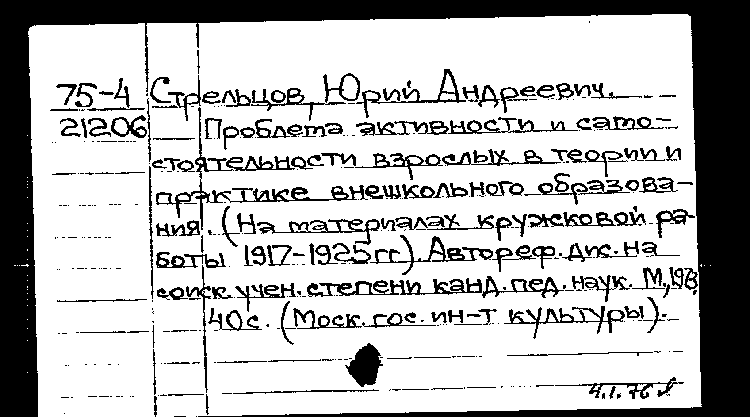 75-4 Стрельцов, Юрий Андреевич.
21206 Проблема активности и само-
стоятельности взрослых в теории и
практике внешкольного образова-
ния. (На материалах кружковой ра-
боты 1917-1925гг). Автореф. дис. на
соиск. учен. степени канд. пед. наук. М.,
40с. (Моск. гос. ин-т культуры).
4.1.76